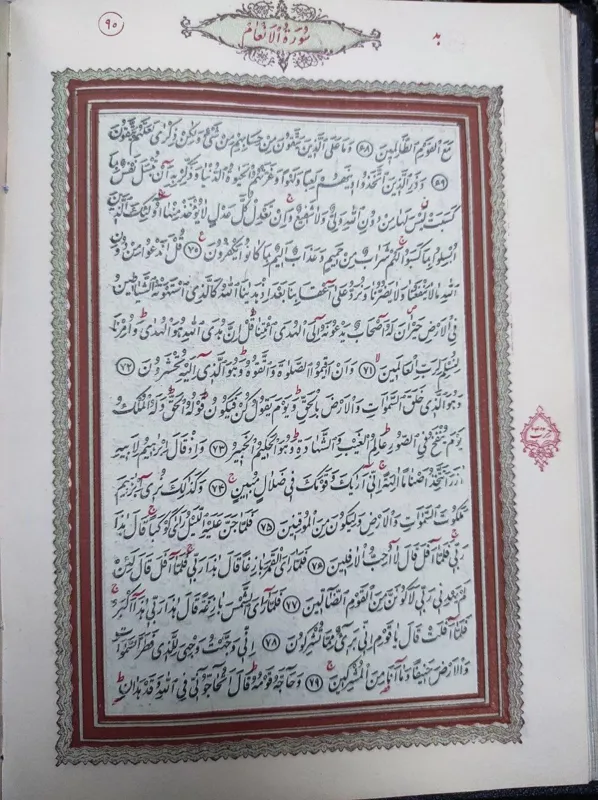 ٩٥
سُورَةُ الْاَنْعَامْ
بد
مَعَ الْقَوْمِ الظَّالِمِينَ ٦٨ وَمَا عَلَى الَّذِينَ يَتَّقُونَ مِنْ حِسَابِهِمْ مِنْ شَىْءٍ وَلٰكِنْ ذِكْرٰى لَعَلَّهُمْ يَتَّقُونَ
٦٩ وَذَرِ الَّذِينَ اتَّخَذُوا دِينَهُمْ لَعِبًا وَلَهْوًا وَغَرَّتْهُمُ الْحَيٰوةُ الدُّنْيَا وَذَكِّرْ بِهِ اَنْ تُبْسَلَ نَفْسٌ بِمَا
كَسَبَتْ لَيْسَ لَهَا مِنْ دُونِ اللّٰهِ وَلِىٌّ وَلَا شَفِيعٌ وَاِنْ تَعْدِلْ كُلَّ عَدْلٍ لَا يُؤْخَذْ مِنْهَا اُولٰئِكَ الَّذِينَ
اُبْسِلُوا بِمَا كَسَبُوا لَهُمْ شَرَابٌ مِنْ حَمِيمٍ وَعَذَابٌ اَلِيمٌ بِمَا كَانُوا يَكْفُرُونَ ٧٠ قُلْ اَنَدْعُوا مِنْ دُونِ
اللّٰهِ مَا لَا يَنْفَعُنَا وَلَا يَضُرُّنَا وَنُرَدُّ عَلٰى اَعْقَابِنَا بَعْدَ اِذْ هَدٰينَا اللّٰهُ كَالَّذِى اسْتَهْوَتْهُ الشَّيَاطِينُ
فِى الْاَرْضِ حَيْرَانَ لَهُ اَصْحَابٌ يَدْعُونَهُ اِلَى الْهُدَى ائْتِنَا قُلْ اِنَّ هُدَى اللّٰهِ هُوَ الْهُدٰى وَاُمِرْنَا
لِنُسْلِمَ لِرَبِّ الْعَالَمِينَ ٧١ وَاَنْ اَقِيمُوا الصَّلٰوةَ وَاتَّقُوهُ وَهُوَ الَّذِى اِلَيْهِ تُحْشَرُونَ ٧٢
وَهُوَ الَّذِى خَلَقَ السَّمٰوَاتِ وَالْاَرْضَ بِالْحَقِّ وَيَوْمَ يَقُولُ كُنْ فَيَكُونُ قَوْلُهُ الْحَقُّ وَلَهُ الْمُلْكُ
يَوْمَ يُنْفَخُ فِى الصُّورِ عَالِمُ الْغَيْبِ وَالشَّهَادَةِ وَهُوَ الْحَكِيمُ الْخَبِيرُ ٧٣ وَاِذْ قَالَ اِبْرٰهِيمُ لِاَبِيهِ
اٰزَرَ اَتَتَّخِذُ اَصْنَامًا اٰلِهَةً اِنِّى اَرٰيكَ وَقَوْمَكَ فِى ضَلَالٍ مُبِينٍ ٧٤ وَكَذٰلِكَ نُرِى اِبْرٰهِيمَ
مَلَكُوتَ السَّمٰوَاتِ وَالْاَرْضِ وَلِيَكُونَ مِنَ الْمُوقِنِينَ ٧٥ فَلَمَّا جَنَّ عَلَيْهِ الَّيْلُ رَاٰ كَوْكَبًا قَالَ هٰذَا
رَبِّى فَلَمَّا اَفَلَ قَالَ لَا اُحِبُّ الْاٰفِلِينَ ٧٦ فَلَمَّا رَاَ الْقَمَرَ بَازِغًا قَالَ هٰذَا رَبِّى فَلَمَّا اَفَلَ قَالَ لَئِنْ
لَمْ يَهْدِنِى رَبِّى لَاَكُونَنَّ مِنَ الْقَوْمِ الضَّالِّينَ ٧٧ فَلَمَّا رَاَ الشَّمْسَ بَازِغَةً قَالَ هٰذَا رَبِّى هٰذَا اَكْبَرُ
فَلَمَّا اَفَلَتْ قَالَ يَا قَوْمِ اِنِّى بَرِىءٌ مِمَّا تُشْرِكُونَ ٧٨ اِنِّى وَجَّهْتُ وَجْهِىَ لِلَّذِى فَطَرَ السَّمٰوَاتِ
وَالْاَرْضَ حَنِيفًا وَمَا اَنَا مِنَ الْمُشْرِكِينَ ٧٩ وَحَاجَّهُ قَوْمُهُ قَالَ اَتُحَاجُّونِّى فِى اللّٰهِ وَقَدْ هَدٰانِ